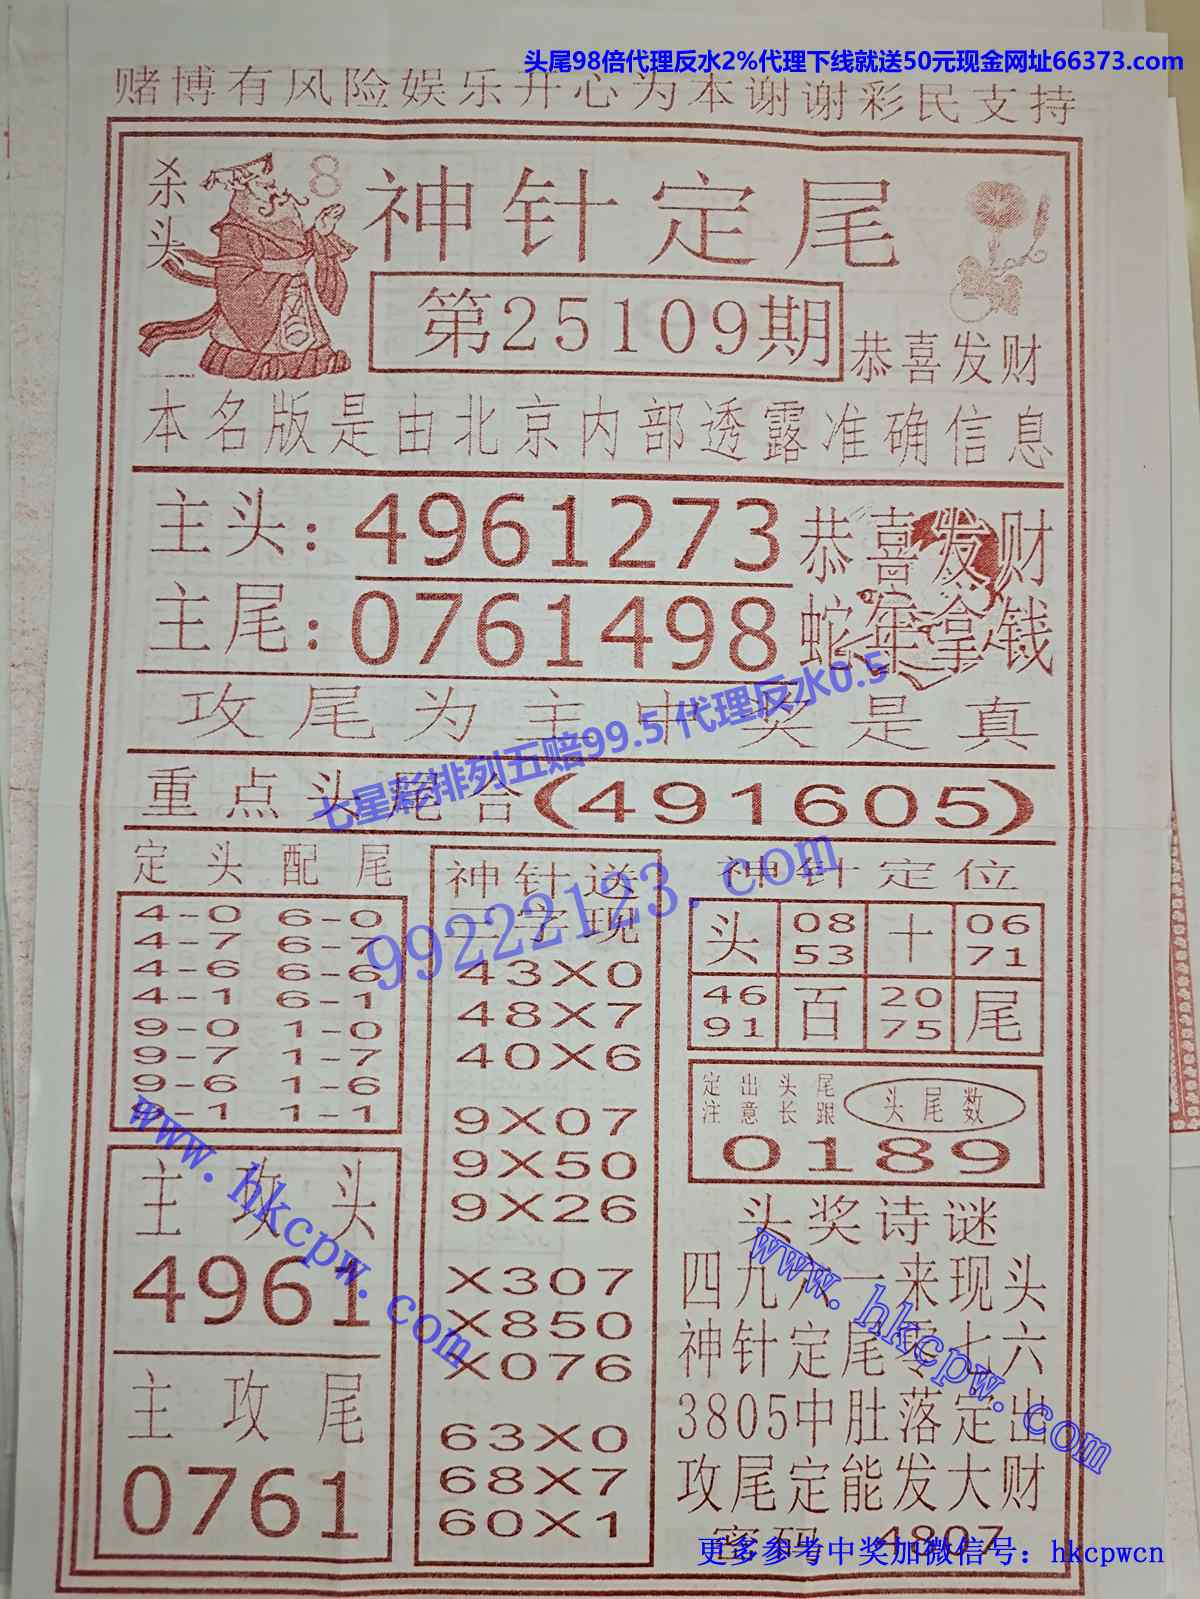 头尾98倍代理反水2%代理下线就送50元现金网址66373.com
赌博有风险娱乐开心为本谢谢彩民支持
杀头
8
神针定尾
第25109期
恭喜发财
本名版是由北京内部透露准确信息
主头：4961273
恭喜发财
主尾：0761498
蛇年拿钱
攻尾为主中奖是真
七星彩排列五赔99.5 代理反水0.5
重点头尾合(491605)
99222123.com
定头配尾
4-0 6-0
4-7 6-7
4-6 6-6
4-1 6-1
9-0 1-0
9-7 1-7
9-6 1-6
9-1 1-1
主攻头
4961
主攻尾
0761
www.hkcpw.com
神针送
三字现
43X0
48X7
40X6
9X07
9X50
9X26
X307
X850
X076
63X0
68X7
60X1
神针定位
头 08 十 06
53 71
46 百 20 尾
91 75
定出头尾
注意长跟
头尾数
0189
头奖诗谜
四九六一来现头
神针定尾零七六
3805中肚落定出
攻尾定能发大财
密码 4807
www.hkcpw.com
更多参考中奖加微信号：hkcpwcn